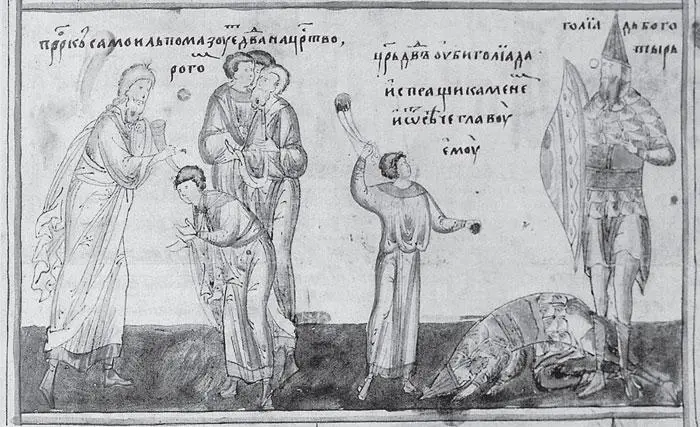 прⷪ҇ркъ самоиль помазоуеⷮ двⷣа на црⷭ҇тво,
рого
цр҃ь дв҃ъ оуби голіада
испращи камене
и ѿсѣче главоу
емоу
голіадь бого
тырь